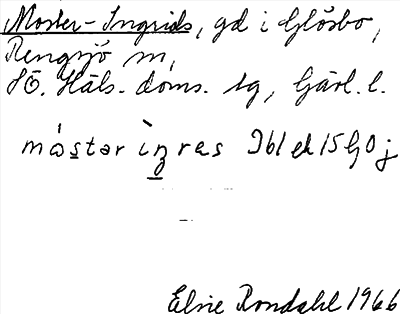 Moster-Ingrids, gd i Glösbo,
Rengsjö sn,
SÖ. Häls. doms. tg, Gävl. l.
mástər ìŋras 261 ek 15G0j
Elsie Rondahl 1966